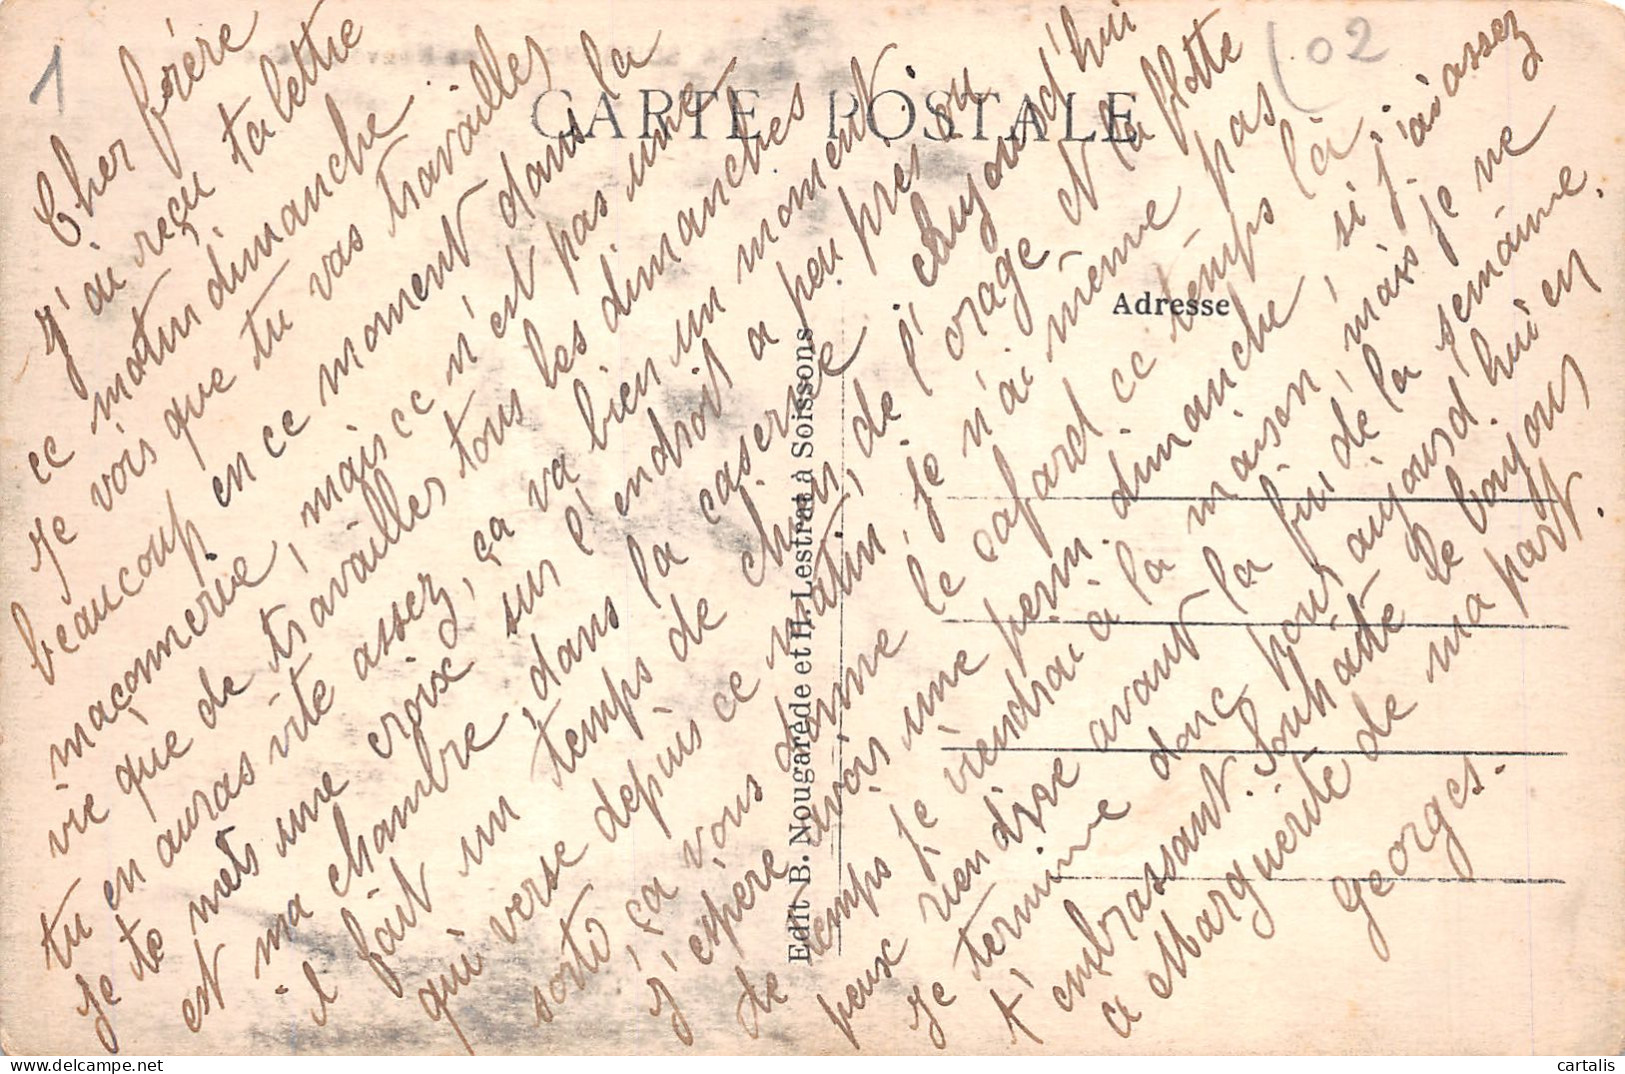 1
(02
CARTE POSTALE
Adresse
Edit B. Nougarède et H. Lestrat à Soissons
Cher frère
J'ai reçu ta lettre
ce matin dimanche.
Je vois que tu vas travailles
beaucoup en ce moment dans la
maçonnerie, mais ce n'est pas une
vie que de travailles tous les dimanches
tu en auras vite assez, ça va bien un moment
Je te mets une croix sur l'endroit a peu près ou
est ma chambre, dans la caserne. Aujourd'hui
il fait un temps de chien, de l'orage et la flotte
qui verse depuis ce matin, je n'ai même pas
sorti, ça vous donne le cafard ce temps là.
J'espère avoir une perm. dimanche, si j'ai assez
de temps je viendrai à la maison, mais je ne
peux rien dire avant la fin de la semaine.
Je termine donc pour aujourd'hui en
t'embrassant. Souhaite le bonjour
a Marguerite de ma part.
Georges.
cartalis